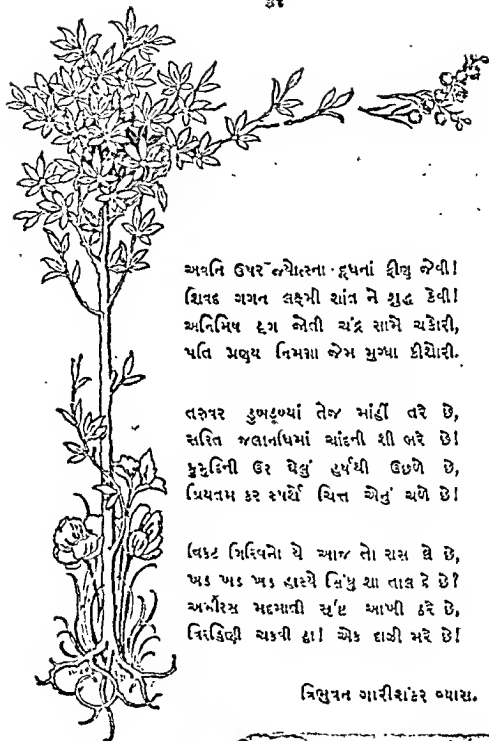 અવનિ ઉપર જ્યોત્સ્ના દૂધનાં ફીણ જેવી!
વિશદ ગગન લક્ષ્મી શાંત ને શુદ્ધ કેવી!
અનિમિષ દૃગ જોતી ચંદ્ર સામે ચકોરી,
પતિ પ્રણય નિમગ્ના જેમ મુગ્ધા કીશોરી.
તરુવર ડુબડૂબ્યાં તેજ માંહીં તરે છે,
સરિત જલનિધિમાં ચાંદની શી ભરે છે!
કુમુદિની ઉર ઘેલું હર્ષથી ઉછળે છે,
પ્રિયતમ કર સ્પર્શે ચિત્ત એનું ચળે છે!
વિકટ ગિરિવનો યે આજ તો રાસ લે છે,
ખડ ખડ ખડ હાસ્યે સિંધુ શા તાલ દે છે!
અમીરસ મદમાતી સૃષ્ટિ આખી ઠરે છે,
વિરહિણી ચકવી હા! એક દાઝી મરે છે!
ત્રિભુવન ગૌરીશંકર વ્યાસ.